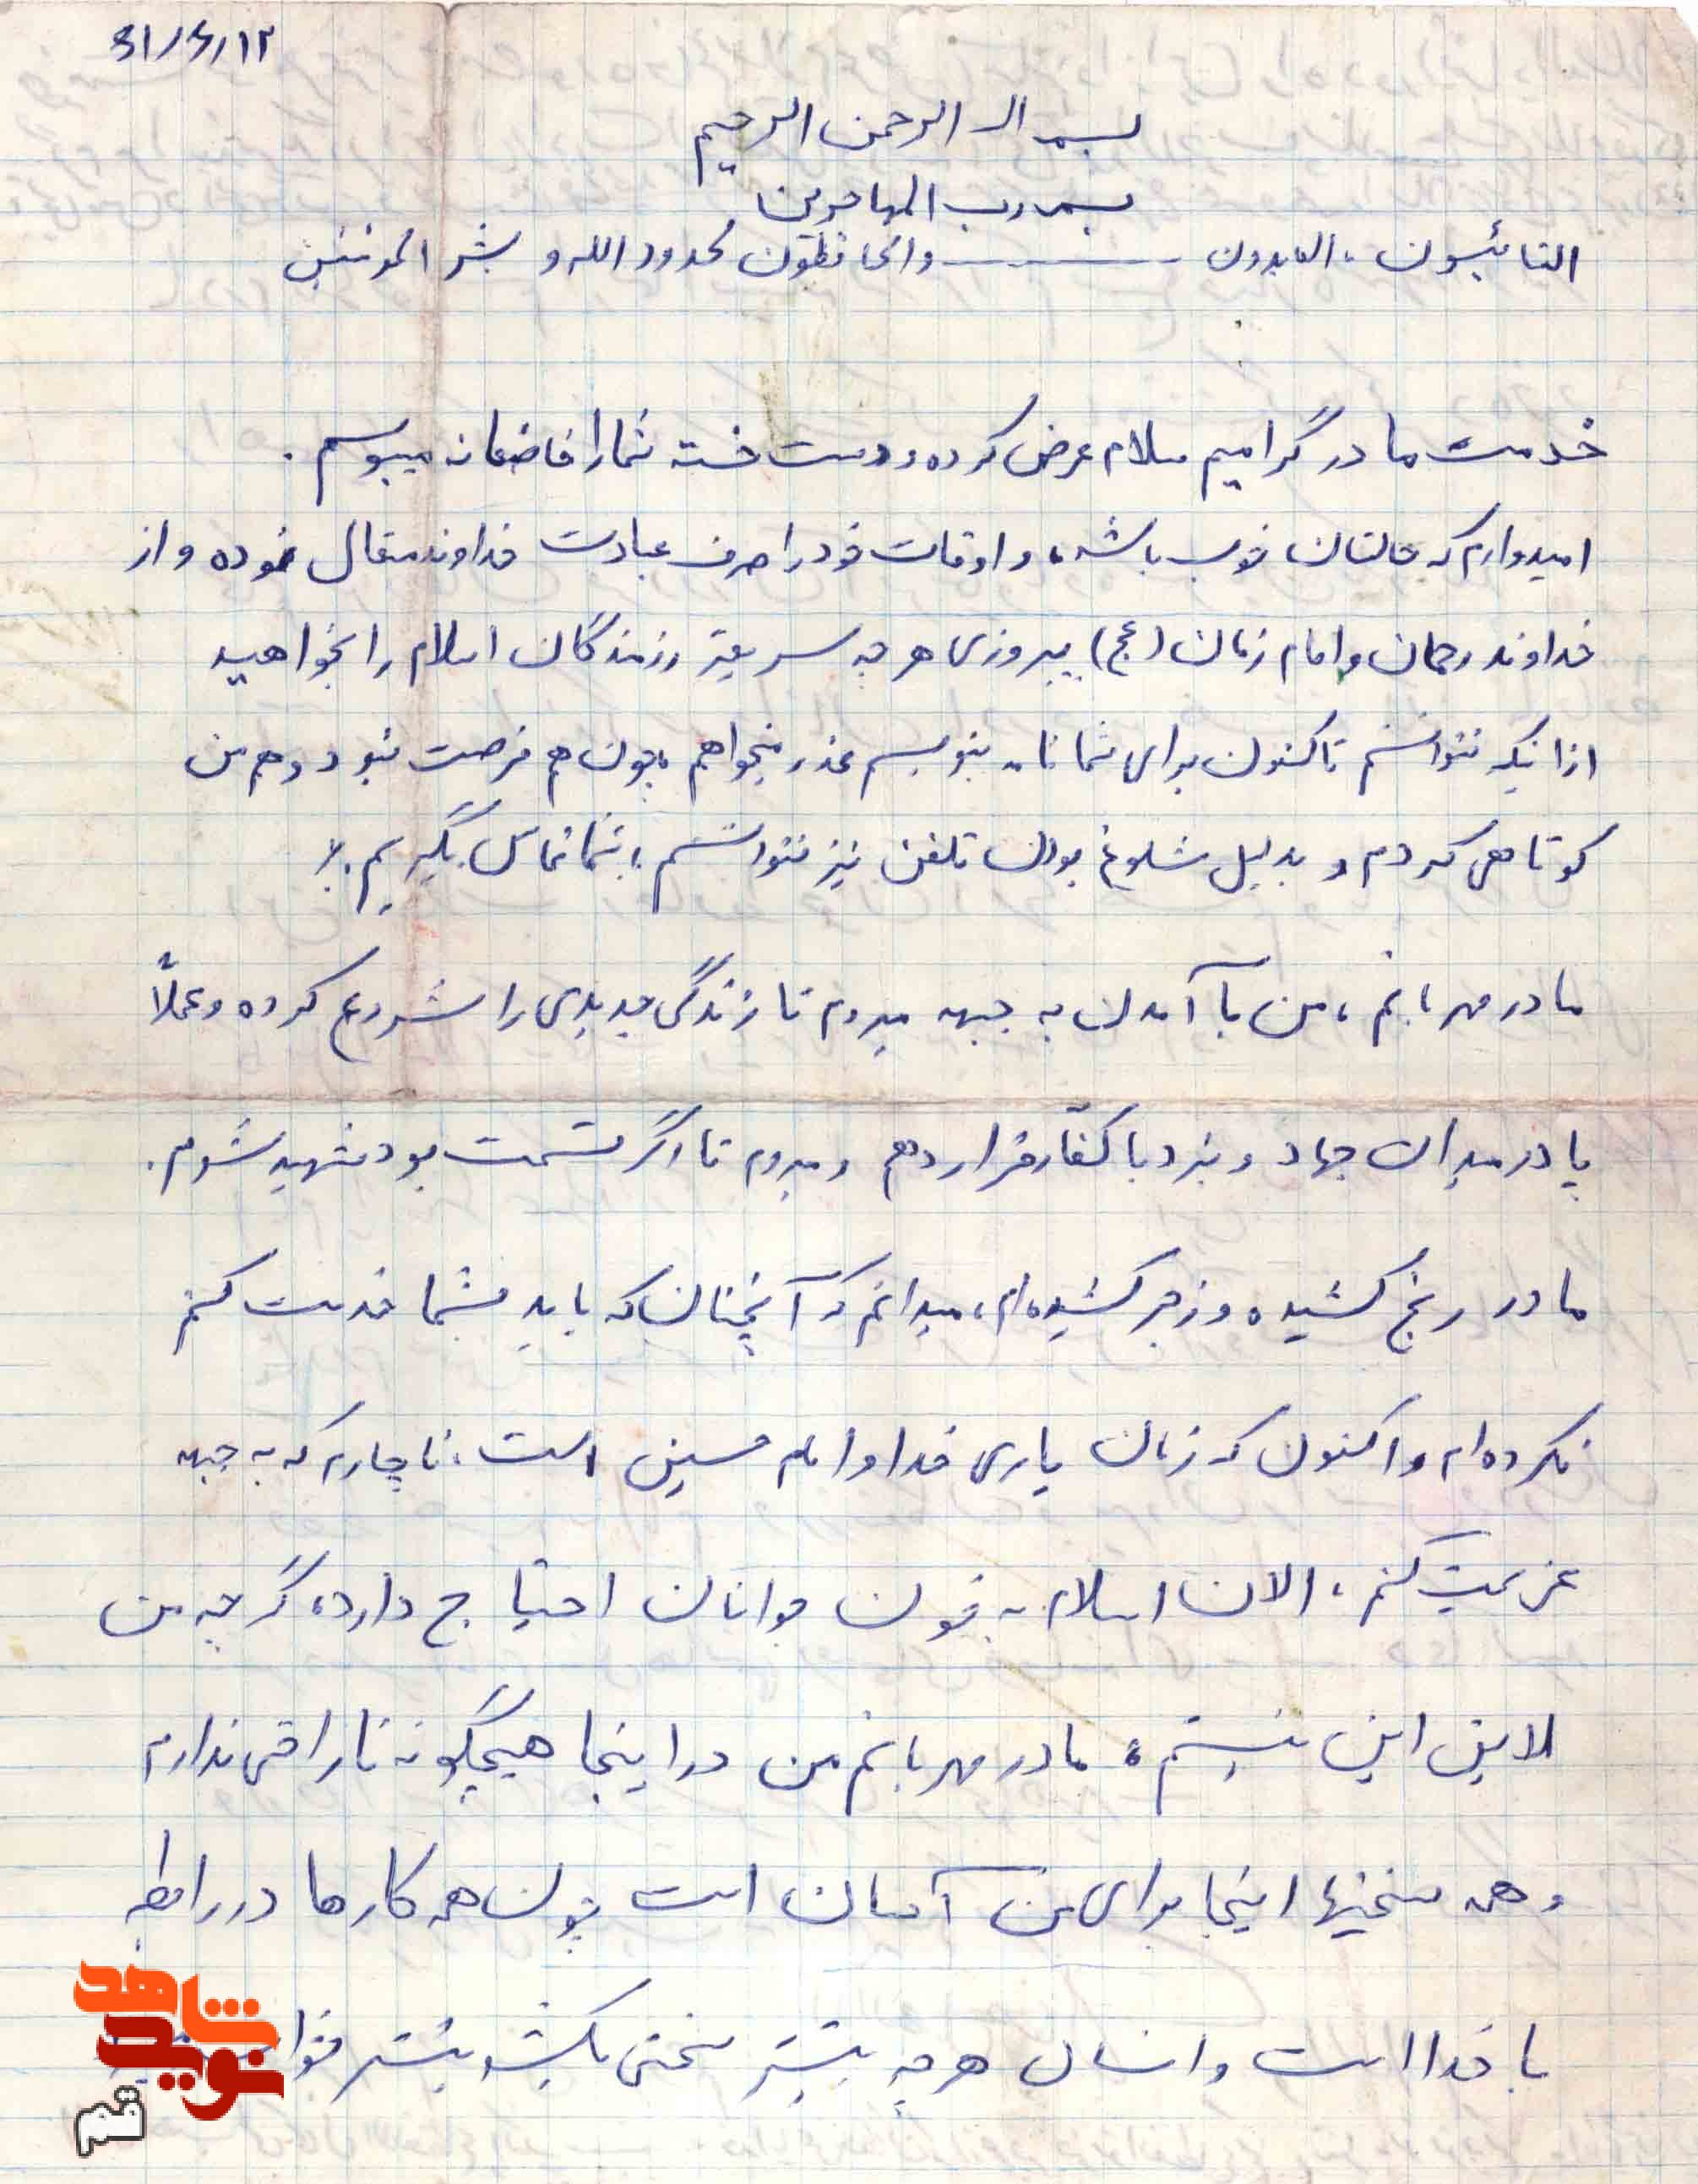 بسم الله الرحمن الرحیم
بسم رب المهاجرین
التائبون، العابدون ــــــــ والحافظون لحدود الله و بشر المؤمنین
خدمت مادر گرامیم سلام عرض کرده و دست خسته شما را خاضعانه میبوسم.
امیدوارم که حالتان خوب باشد، و اوقات خود را صرف عبادت خداوند متعال نموده و از
خداوند رحمان و امام زمان (عج) پیروزی هر چه سریعتر رزمندگان اسلام را بخواهید
از اینکه نتوانستم تاکنون برای شما نامه بنویسم عذر میخواهم، چون هم فرصت نبود و هم من
کوتاهی کردم و بدلیل شلوغ بودن تلفن نیز نتوانستم با شما تماس بگیریم.
مادر مهربانم، من با آمدن به جبهه میروم تا زندگی جدیدی را شروع کرده و عملاً
پا در میدان جهاد و نبرد با کفار قرار دهم و میروم تا اگر قسمت بود شهید شوم.
مادر رنج کشیده و زجر کشیده‌ام، میدانم که آنچنان که باید بشما خدمت کنم
نکرده‌ام و اکنون که زمان یاری خدا و امام حسین است، ناچارم که به جبهه
عزیمت کنم، الان اسلام به خون جوانان احتیاج دارد، گرچه من
لایق این نیستم، مادر مهربانم من در اینجا هیچگونه ناراحتی ندارم
و همه سختیها اینجا برای من آسان است چون همه کارها در رابطه
با خدا است و انسان هر چه بیشتر سختی بکشد بیشتر
شاهد
نوید
قم